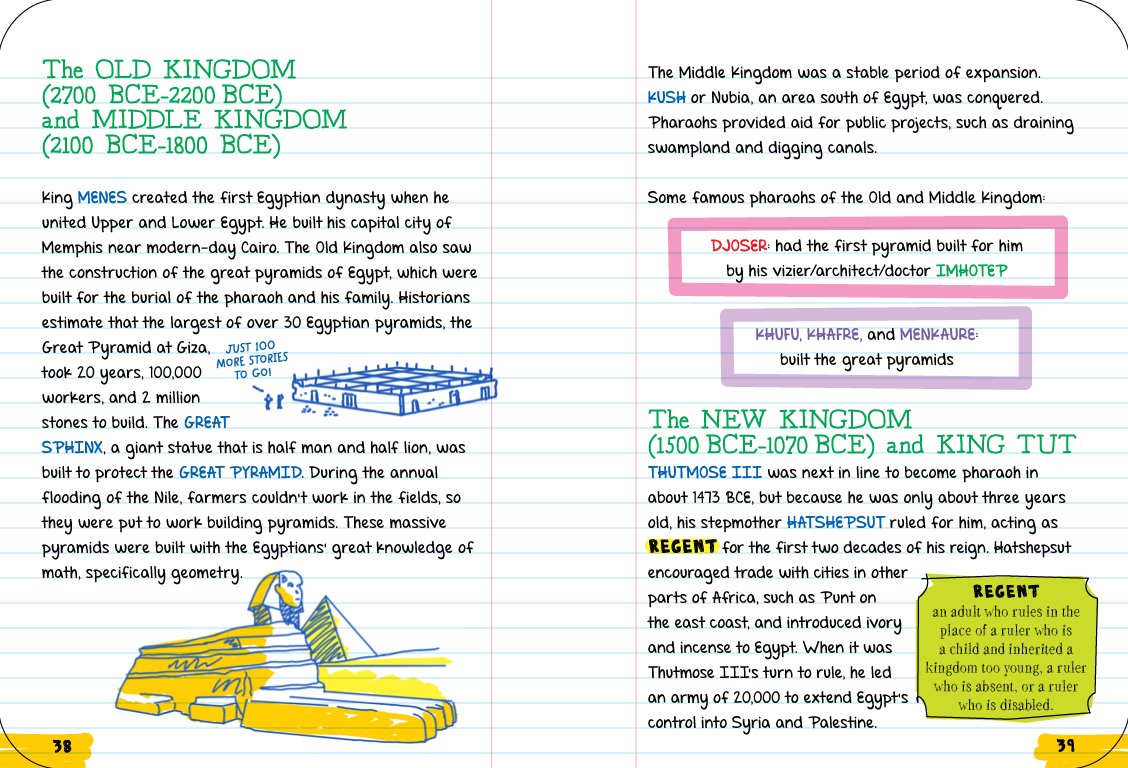 The OLD KINGDOM
(2700 BCE–2200 BCE)
and MIDDLE KINGDOM
(2100 BCE–1800 BCE)
King MENES created the first Egyptian dynasty when he
united Upper and Lower Egypt. He built his capital city of
Memphis near modern-day Cairo. The Old Kingdom also saw
the construction of the great pyramids of Egypt, which were
built for the burial of the pharaoh and his family. Historians
estimate that the largest of over 30 Egyptian pyramids, the
Great Pyramid at Giza,
took 20 years, 100,000
workers, and 2 million
stones to build. The GREAT
JUST 100
MORE STORIES
TO GO!
SPHINX, a giant statue that is half man and half lion, was
built to protect the GREAT PYRAMID. During the annual
flooding of the Nile, farmers couldn't work in the fields, so
they were put to work building pyramids. These massive
pyramids were built with the Egyptians' great knowledge of
math, specifically geometry.
38
The Middle Kingdom was a stable period of expansion.
KUSH or Nubia, an area south of Egypt, was conquered.
Pharaohs provided aid for public projects, such as draining
swampland and digging canals.
Some famous pharaohs of the Old and Middle Kingdom:
DJOSER: had the first pyramid built for him
by his vizier/architect/doctor IMHOTEP
KHUFU, KHAFRE, and MENKAURE:
built the great pyramids
The NEW KINGDOM
(1500 BCE–1070 BCE) and KING TUT
THUTMOSE III was next in line to become pharaoh in
about 1473 BCE, but because he was only about three years
old, his stepmother HATSHEPSUT ruled for him, acting as
REGENT for the first two decades of his reign. Hatshepsut
encouraged trade with cities in other
parts of Africa, such as Punt on
the east coast, and introduced ivory
and incense to Egypt. When it was
Thutmose III's turn to rule, he led
an army of 20,000 to extend Egypt's
control into Syria and Palestine.
REGENT
an adult who rules in the
place of a ruler who is
a child and inherited a
kingdom too young, a ruler
who is absent, or a ruler
who is disabled.
39